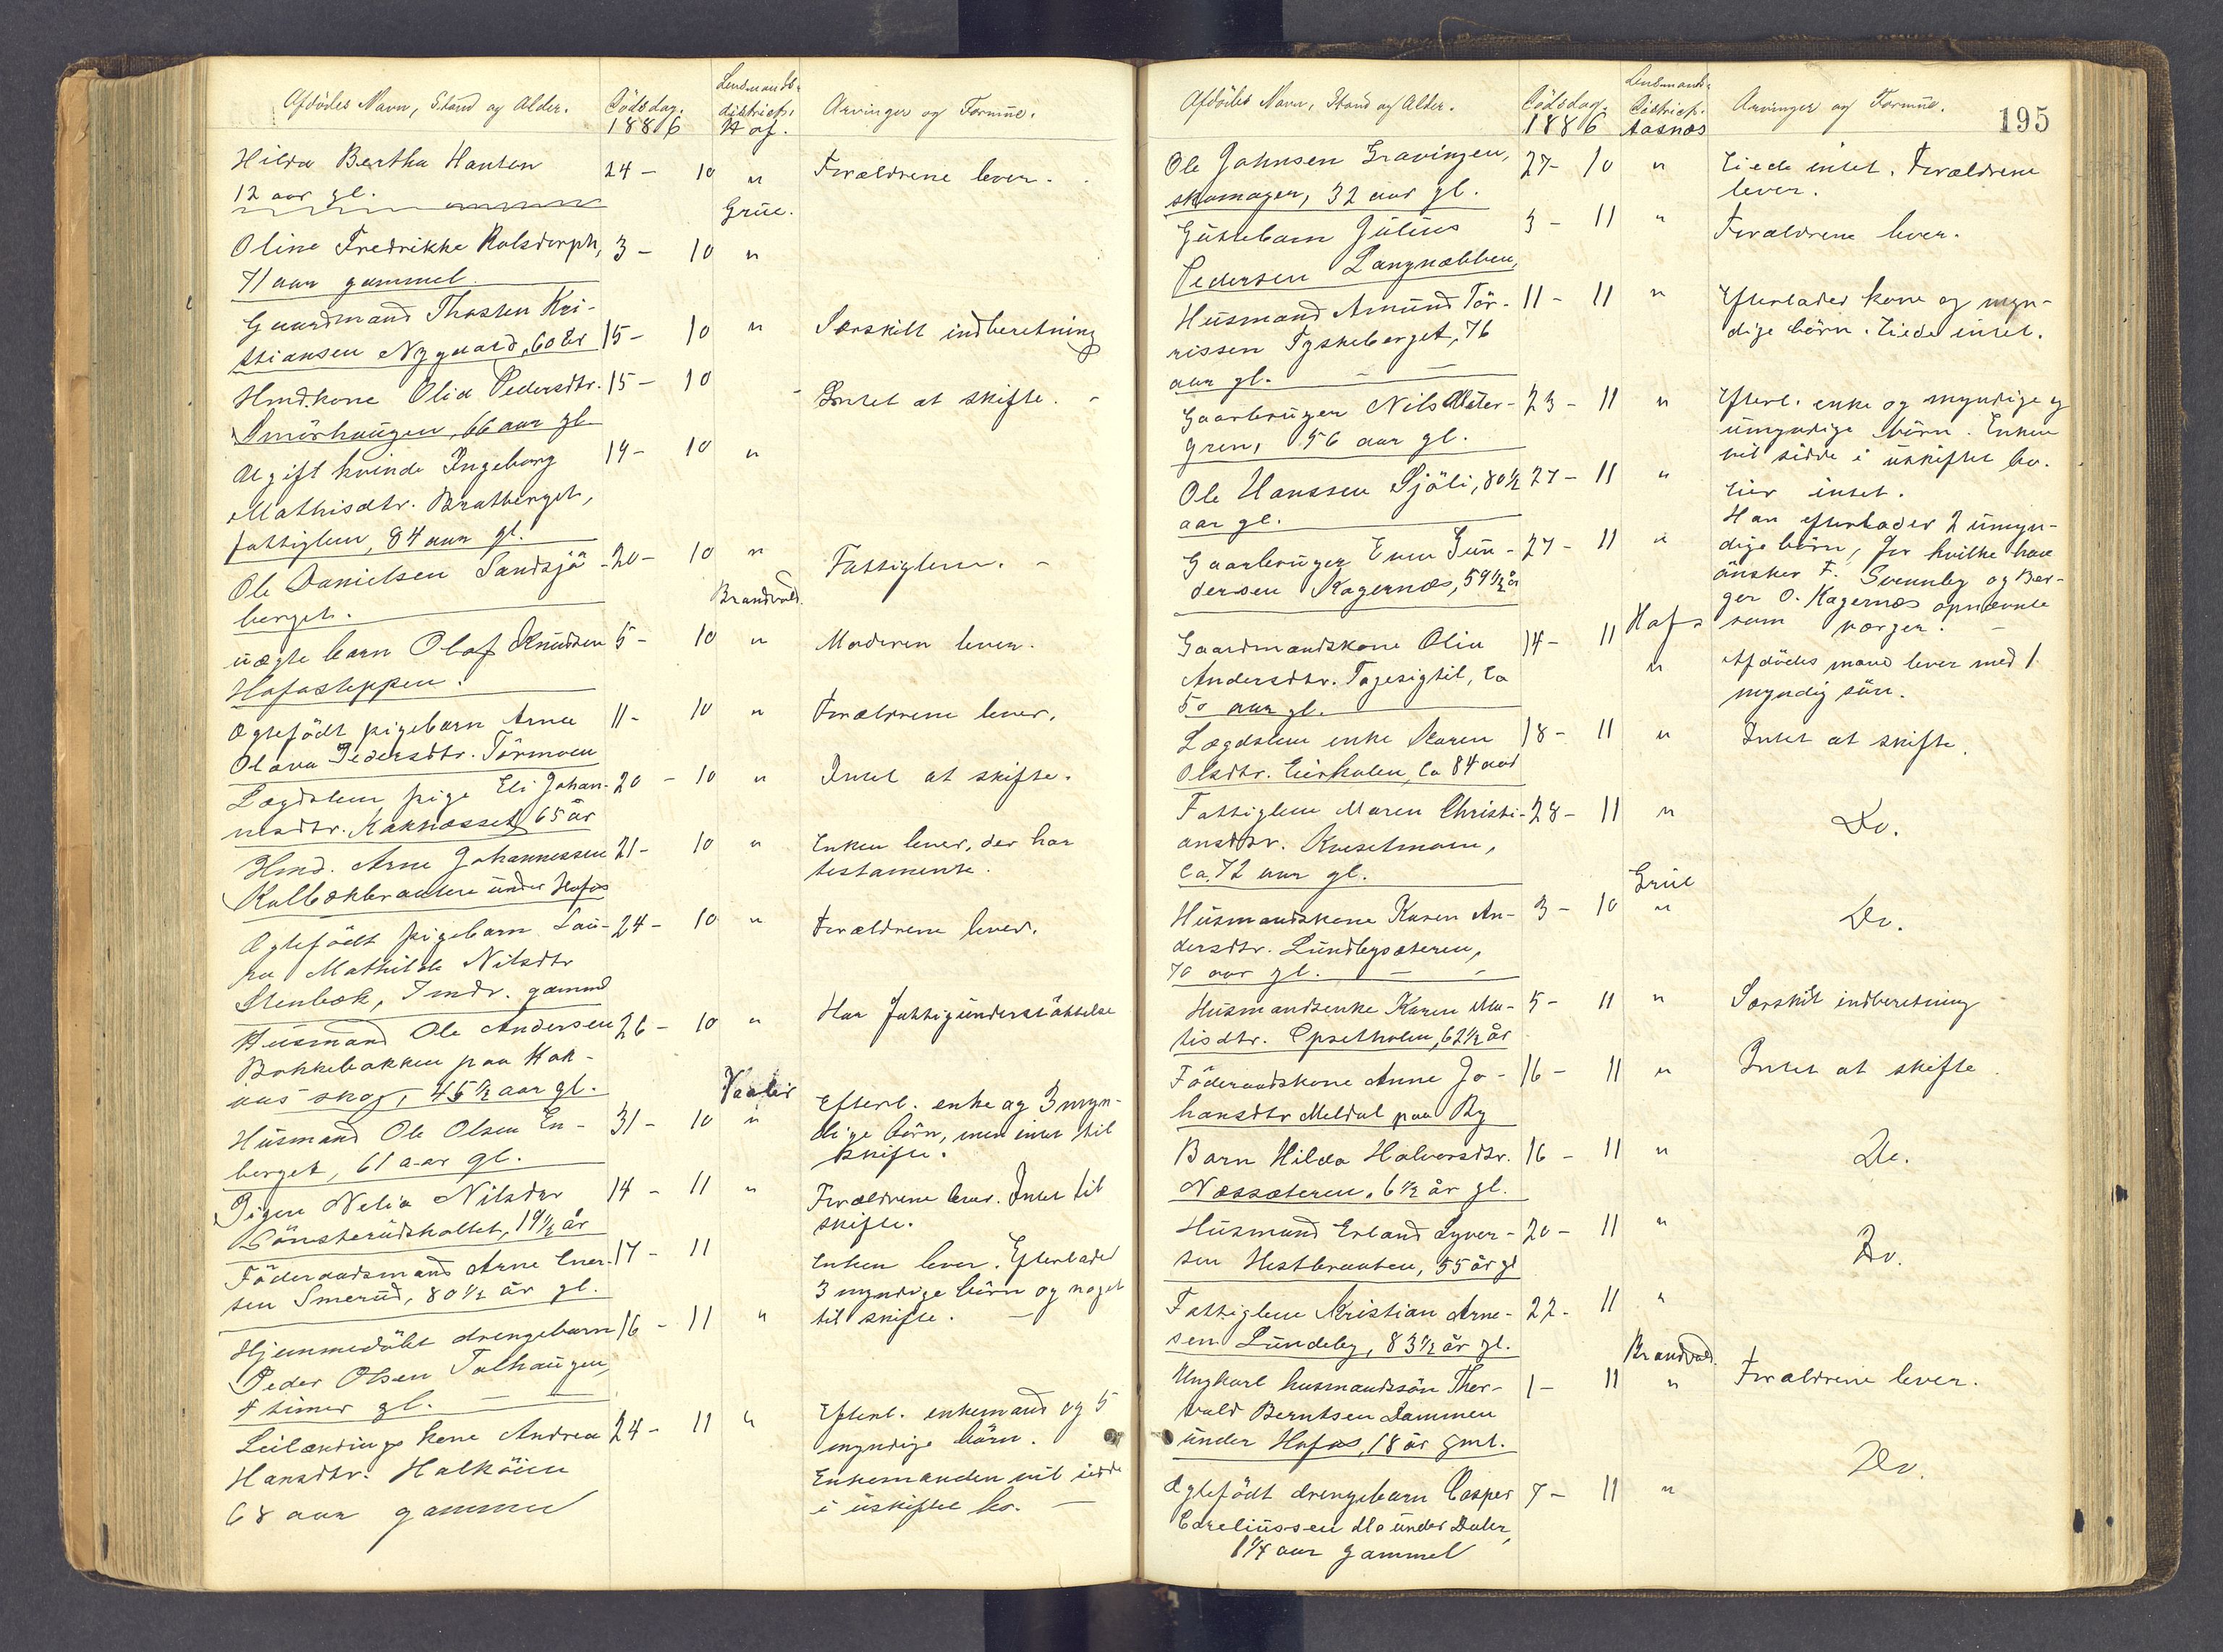 Afdödes Navn, Stand og Alder.
Dödsdag.
1886
Lensmands-
distrikt.
Hof.
Arvinger og Formue.
Hilda Bertha Hansen
12 aar gl.
24 - 10 "
Forældrene lever.
Grue.
Oline Fredrikke Kolsdorph,
71 aar gammel
3 - 10 "
Gaardmand Thosten Kri-
stiansen Nygaard, 60 år
15 - 10 "
Særskilt indberetning
Hmd.kone Olia Pedersdtr.
Smörhaugen, 66 aar gl
15 - 10
Intet at skifte.
Ugift kvinde Ingeborg
Mathisdtr. Bratberget,
fattiglem, 84 aar gl.
19 - 10 "
Ole Danielsen Sandsjö-
berget.
20 - 10 "
Fattiglem.
Brandvold.
uægte barn Olaf Knudsen
Hofosteppen.
5 - 10 "
Moderen lever.
Ægtefödt pigebarn Anna
Olava Pedersdtr. Törmoen
11 - 10 "
Forældrene lever.
Lægdslem pige Eli Johan-
nesdtr. Kaknæsset 65 år
20 - 10 "
Intet at skifte.
Hmd. Arne Johannessen
Kolbækbraaten under Hofos
21 - 10 "
Enken lever, der har
testamente.
Ægtefödt pigebarn Lau-
ra Mathilde Nilsdtr
Stenbæk, 7 mdr. gammel
24 - 10 "
Forældrene lever.
Husmand Ole Andersen
Bakkebakken paa Kak-
næs skog, 45 1/2 aar gl.
26 - 10 "
Har fattigunderstöttelse
Vaaler
Husmand Ole Olsen En-
berget, 61 aar gl.
31 - 10 "
Efterl. enke og 3 myn-
dige börn, men intet til
skifte.
Pigen Nelia Nilsdtr
Sönsterudskoltet, 19 1/2 år
14 - 11 "
Forældrene lever. Intet til
skifte.
Föderaadsmand Arne Ener-
sen Smerud, 80 1/2 år gl.
17 - 11
Enken lever. Efterlader
3 myndige börn og noget
til skifte.
Hjemmedöbt drengebarn
Peder Olsen Tolhaugen,
4 timer gl.
16 - 11 "
Leilændings kone Andrea
Hansdtr. Halköien
68 aar gammel
24 - 11 "
Efterl. enkemand og 5
myndige börn.
Enkemanden vil sidde
i uskiftet bo.
195
Afdödes Navn, Stand og Alder.
Dödsdag.
1886
Lensmands-
Distrikt.
Aasnes
Arvinger og Formue.
Ole Johnsen Gravingen,
skomager, 32 aar gl.
27 - 10 "
Eiede intet. Forældrene
lever.
Guttebarn Julius
Pedersen Langnæbben,
3 - 11 "
Forældrene lever.
Husmand Amund Tör-
rissen Tyskeberget, 76
aar gl.
11 - 11 "
Efterlader kone og myn-
dige börn. Eiede intet.
Gaarbruger Nils Wester-
gren, 56 aar gl.
23 - 11 "
Efterl. enke og myndige og
umyndige börn. Enken
vil sidde i uskiftet bo.
Ole Hanssen Sjöli, 80 1/2
aar gl.
27 - 11 "
Eier intet.
Gaarbruger Even Gun-
dersen Kagernæs, 59 1/2 år
27 - 11 "
Han efterlader 2 umyn-
dige börn, for hvilke han
önsker F. Svennby og Ber-
ger O. Kagernæs opnævnte
som værger.
Hofs
Gaardmandskone Olia
Andersdtr. Tagesigtil, ca
50 aar gl.
14 - 11 "
Afdödes mand lever med 1
myndig sön.
Lægdslem enke Karen
Olsdtr. Eierholen, ca 84 aar
18 - 11 "
Intet at skifte.
Fattiglem Maren Christi-
ansdtr. Kveselmoen,
ca. 72 aar gl.
28 - 11 "
Do.
Grue
Husmandskone Karen An-
dersdtr. Lundbysæteren,
70 aar gl.
3 - 10 "
Do.
Husmandsenke Karen Ma-
tisdtr. Opsetholen, 62 1/2 år
5 - 11 "
Særskilt indberetning
Föderaadskone Anne Jo-
hansdtr Meldal paa By
16 - 11 "
Intet at skifte.
Barn Hilda Halvorsdtr.
Næssæteren, 6 1/2 år gl.
16 - 11 "
Do.
Husmand Erland Syver-
sen Hestbraaten, 55 år gl
20 - 11 "
Do.
Fattiglem Kristian Arne-
sen Lundeby, 83 1/2 år gl.
22 - 11 "
Brandvold.
Ungkarl husmandssön Thor-
vald Berntsen Dammen
under Hofos, 18 år gml.
1 - 11 "
Forældrene lever.
Ægtefödt drengebarn Casper
Edveliussen Mo under Daler,
1 1/4 aar gammel
7 - 11 "
Do.